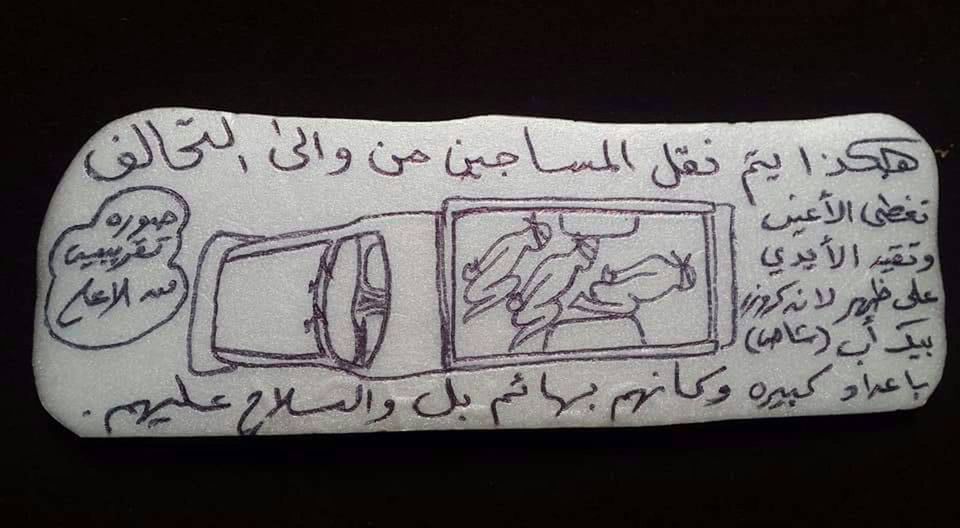 هكذا يتم نقل المساجين من والىٰ التحالف
تغطى الأعين
وتقيد الأيدي
على ظهر لاندكروزر
بيك أب (شاص)
باعداد كبيره وكأنهم بهائم بل والسلاح عليهم .
صوره
تقريبية
من الاعلى